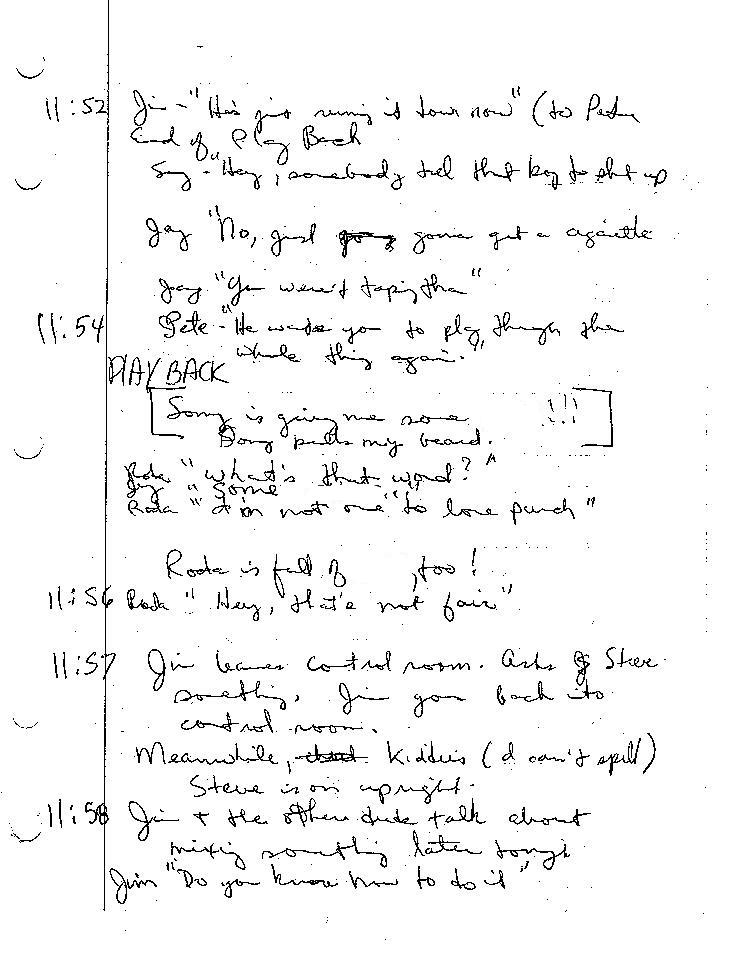 11:52 Jim - "He's just running it down now" (to Peter
End of Play Back
"Hey, somebody tell that to shut up
Jay "No, just gonna get a cigarette
Jay "You weren't taping tha"
11:54 Pete - "He wants you to play through the
whole thing again."
PLAY BACK
Sonny is giving me some !!!
Doug pulls my beard.
Roda "what's that word?"
Jay "Some
Roda "I'm not one "to love punch"
Roda is full of , too!
11:56 Roda "Hey, that's not fair"
11:57 Jim leaves control room. Asks Steve
something. Jim goes back into
control room.
Meanwhile, Kiddies (I can't spell)
Steve is on upright.
11:58 Jim + the other dude talk about
mixing something later tonight
Jim "Do you know how to do it"